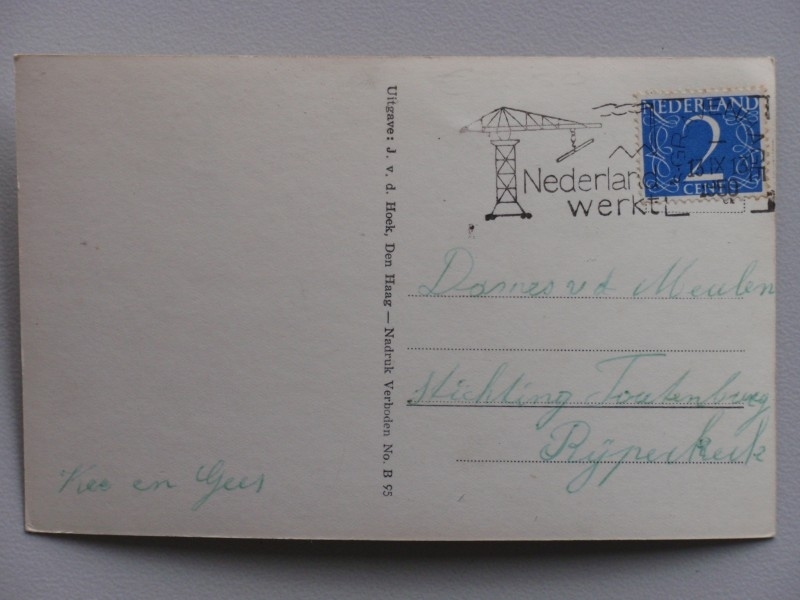 Uitgave: J. v. d. Hoek, Den Haag — Nadruk Verboden No. B 95
Nederland
werkt
NEDERLAND
2
CENT
1950
Dames v d Meulen
Stichting Toutenburg
Rijperkerk
Kee en Gees